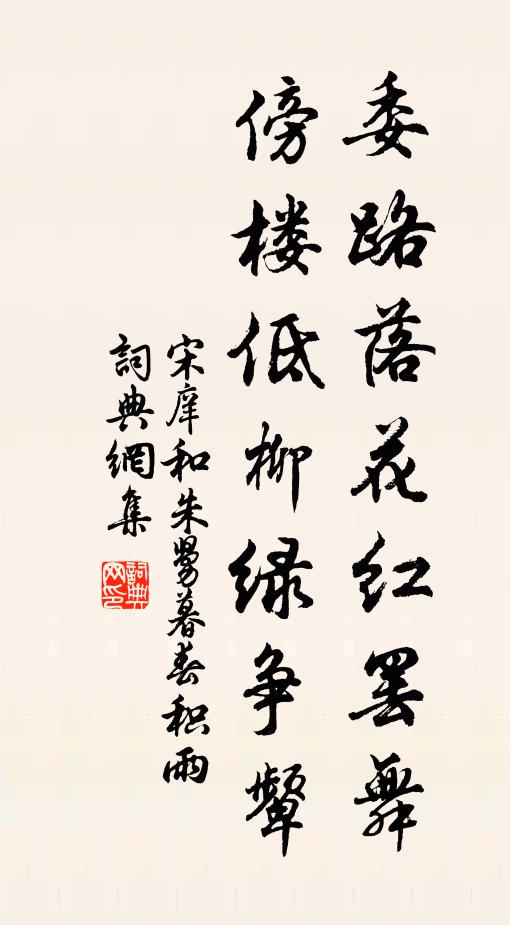 委路落花红罢舞
傍楼低柳绿争颦
宋庠和朱少暮春积雨
詞典網集
詞典网印